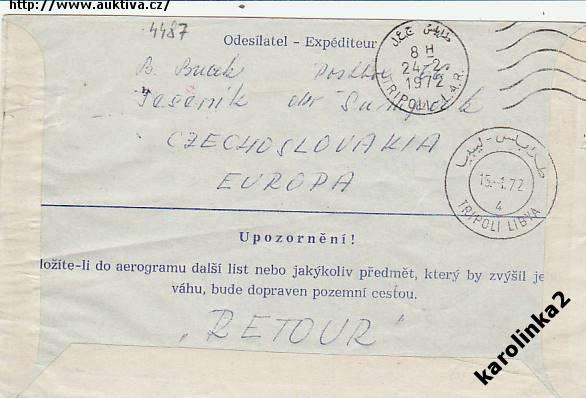 http://www.auktiva.cz/
4487
Odesílatel - Expéditeur
طرابلس ج.ع.ل
8 H
24-2
1972
TRIPOLI L.A.R.
B. Bucek
Jeseník
CZECHOSLOVAKIA
EUROPA
طرابلس - ليبيا
15.-1.72
4
TRIPOLI LIBYA
Upozornění!
ložíte-li do aerogramu další list nebo jakýkoliv předmět, který by zvýšil je
váhu, bude dopraven pozemní cestou.
„RETOUR“
karolinka2